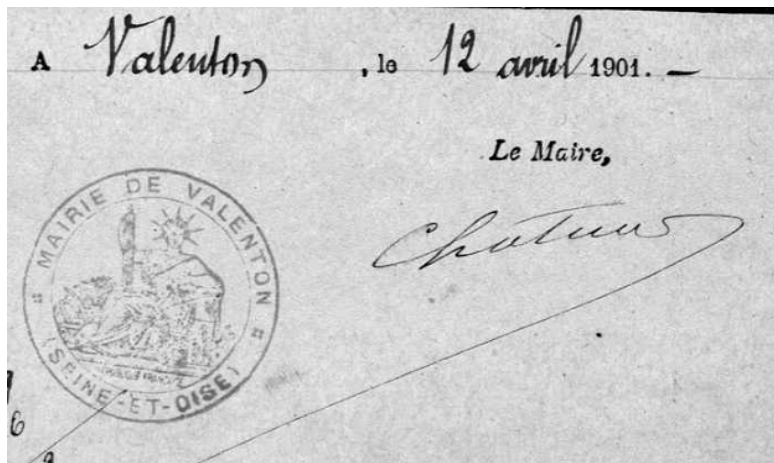 A Valenton, le 12 avril 1901. —
Le Maire,
MAIRIE DE VALENTON
(SEINE-ET-OISE)